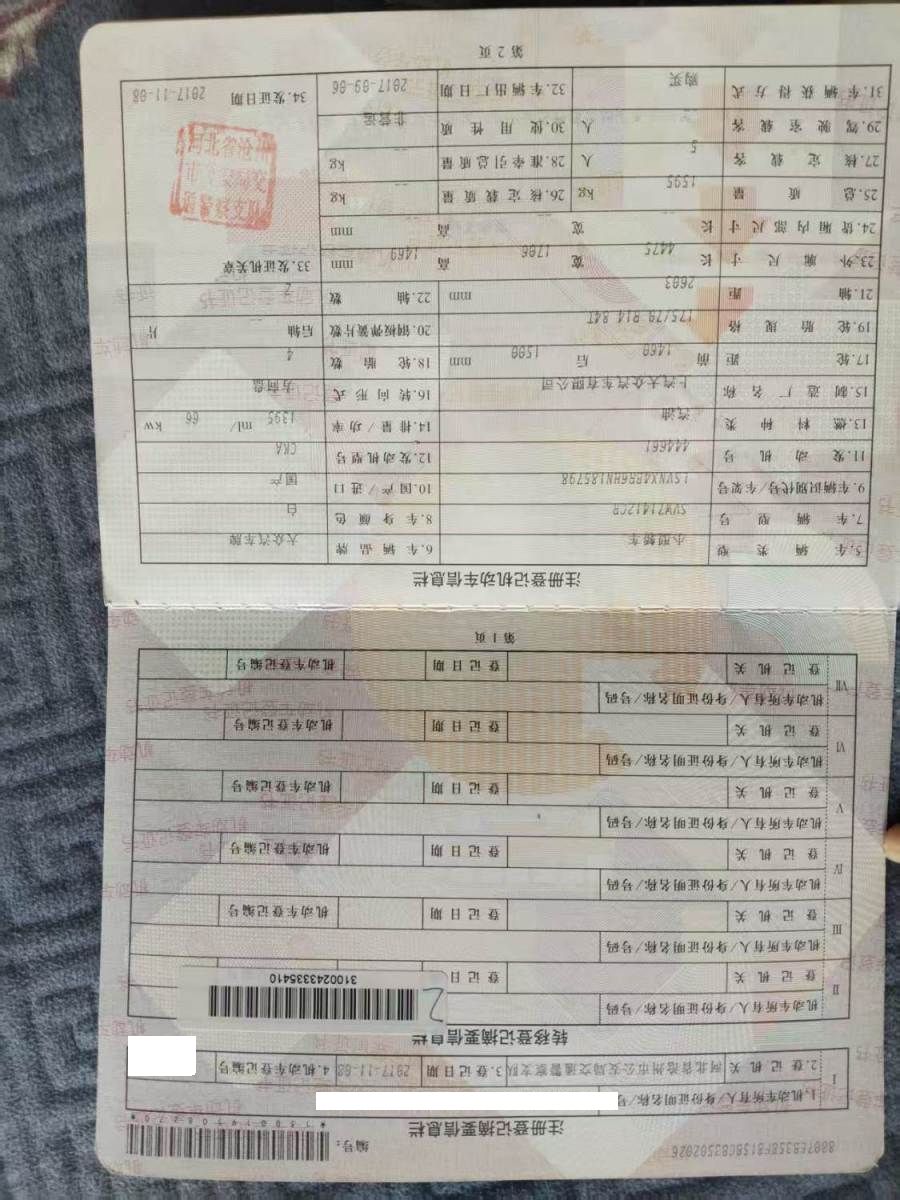 注册登记摘要信息栏
编号：
I
1.机动车所有人/身份证明名称/号
2.登记机关 河北省沧州市公安局交通警察支队 3.登记日期 2017-11-08 4.机动车登记编号
转移登记摘要信息栏
II
机动车所有人/身份证明名称/号码
登记机关 登记日
3100243335410
III
机动车所有人/身份证明名称/号码
登记机关 登记日期 机动车登记编号
IV
机动车所有人/身份证明名称/号码
登记机关 登记日期 机动车登记编号
V
机动车所有人/身份证明名称/号码
登记机关 登记日期 机动车登记编号
VI
机动车所有人/身份证明名称/号码
登记机关 登记日期 机动车登记编号
VII
机动车所有人/身份证明名称/号码
登记机关 登记日期 机动车登记编号
第1页
注册登记机动车信息栏
5.车辆类型 小型轿车 6.车辆品牌 大众汽车牌
7.车辆型号 SVW71412CR 8.车身颜色 白
9.车辆识别代号/车架号 LSVNX4BR6HN185798 10.国产/进口 国产
11.发动机号 444661 12.发动机型号 CKA
13.燃料种类 汽油 14.排量/功率 1395 ml/ 66 kw
15.制造厂名称 上汽大众汽车有限公司 16.转向形式 方向盘
17.轮距 前 1460 后 1500 mm 18.轮胎数 4
19.轮胎规格 175/70 R14 84T 20.钢板弹簧片数 后轴 片
21.轴距 2603 mm 22.轴数 2
23.外廓尺寸 长 4475 宽 1706 高 1469 mm 33.发证机关章
24.货厢内部尺寸 长 宽 高 mm
25.总质量 1595 kg 26.核定载质量 kg
27.核定载客 5 人 28.准牵引总质量 kg
29.驾驶室载客 人 30.使用性质 非营运
31.车辆获得方式 购买 32.车辆出厂日期 2017-09-06 34.发证日期 2017-11-08
河北省沧州
第2页